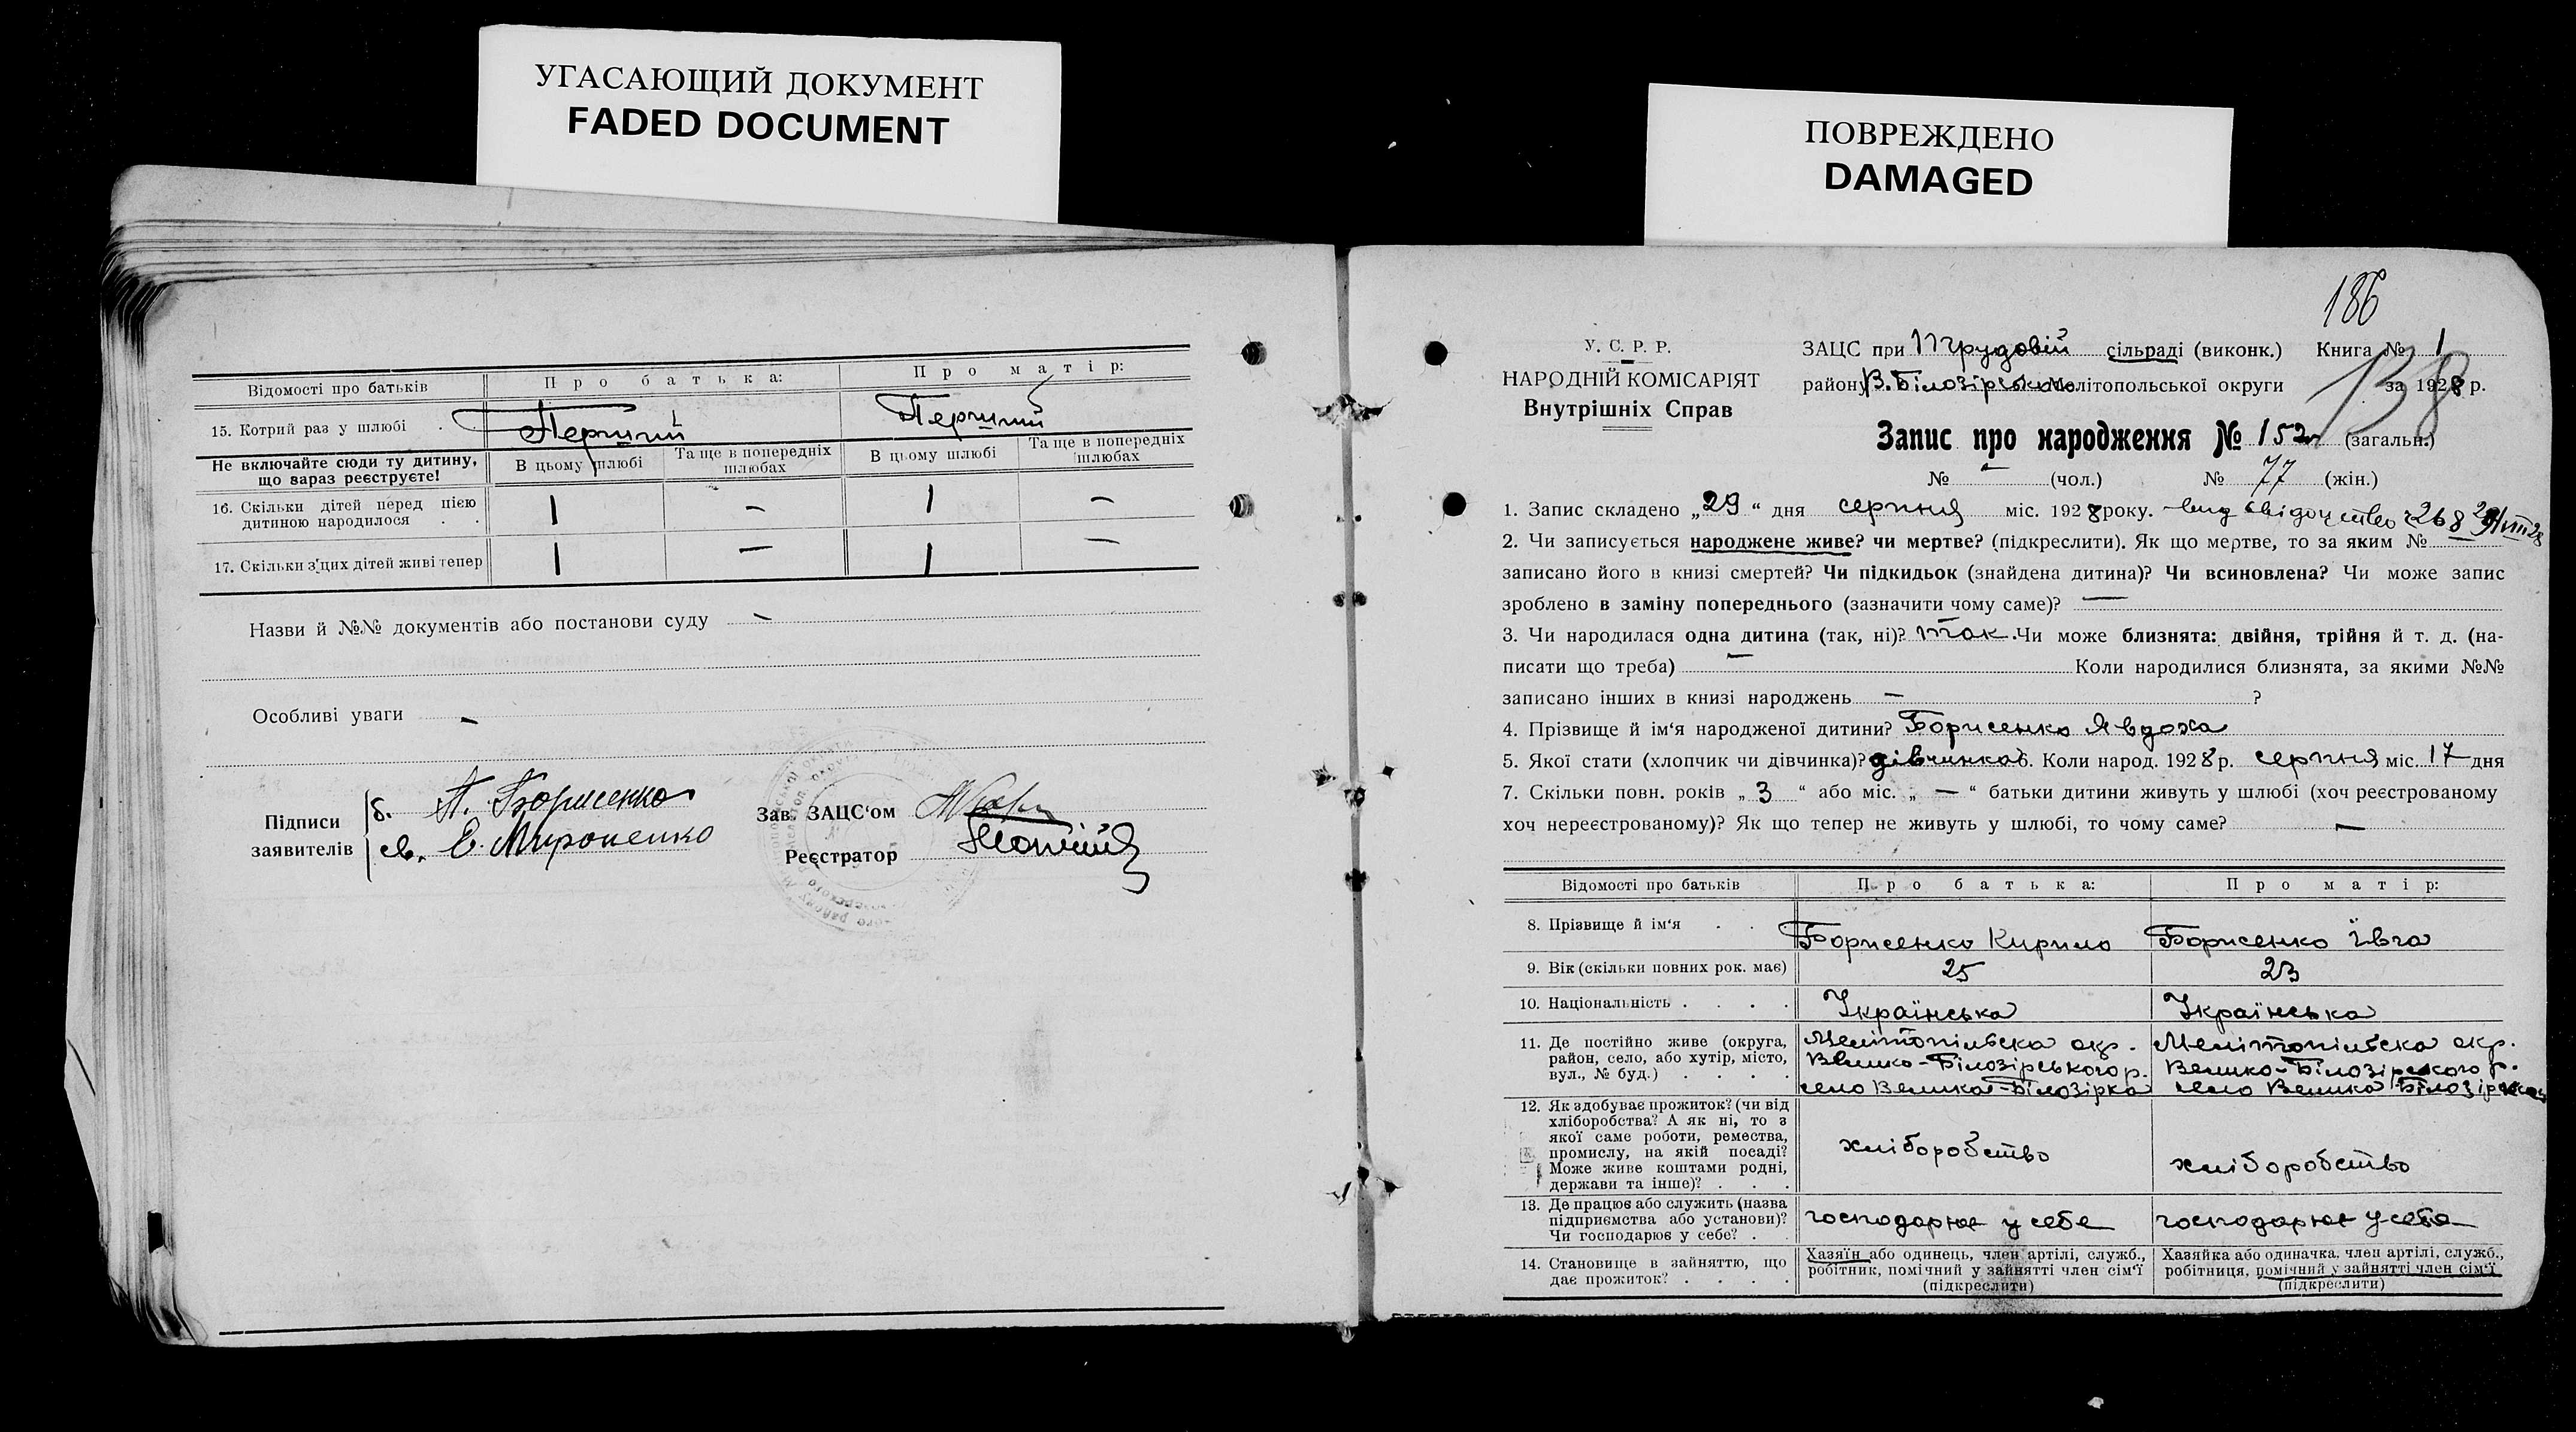 УГАСАЮЩИЙ ДОКУМЕНТ
FADED DOCUMENT
Відомості про батьків
Про батька:
Про матір:
15. Котрий раз у шлюбі .
Перший
Перший
Не включайте сюди ту дитину,
що вараз реєструєте!
В цьому шлюбі
Та ще в попередніх
шлюбах
В цьому шлюбі
Та ще в попередніх
шлюбах
16. Скільки дітей перед цією
дитиною народилося . .
1
—
1
—
17. Скільки з цих дітей живі тепер
1
—
1
—
Назви й №№ документів або постанови суду —
Особливі уваги —
Підписи
заявителів
б. Борисенко
св. Е. Мироненко
Зав. ЗАЦС'ом
Реєстратор
ПОВРЕЖДЕНО
DAMAGED
186
138
У. С. Р. Р.
НАРОДНІЙ КОМІСАРІЯТ
Внутрішніх Справ
ЗАЦС при Трудовій сільраді (виконк.) Книга № 1
району В. Білозірського Мелітопольської округи за 1928 р.
Запис про народження № 152 (загальн.)
№ — (чол.) № 77 (жін.)
1. Запис складено „29“ дня серпня міс. 1928 року. вид свідоцтво 268 29/VIII 28
2. Чи записується народжене живе? чи мертве? (підкреслити). Як що мертве, то за яким № —
записано його в книзі смертей? Чи підкидьок (знайдена дитина)? Чи всиновлена? Чи може запис
зроблено в заміну попереднього (зазначити чому саме)? —
3. Чи народилася одна дитина (так, ні)? так. Чи може близнята: двійня, трійня й т. д. (на-
писати що треба) — Коли народилися близнята, за якими №№
записано інших в книзі народжень — ?
4. Прізвище й ім'я народженої дитини? Борисенко Явдоха
5. Якої стати (хлопчик чи дівчинка)? дівчинка 6. Коли народ. 1928 р. серпня міс. 17 дня
7. Скільки повн. років „3“ або міс. „—“ батьки дитини живуть у шлюбі (хоч реєстрованому
хоч нереєстрованому)? Як що тепер не живуть у шлюбі, то чому саме? —
Відомості про батьків
Про батька:
Про матір:
8. Прізвище й ім'я . .
Борисенко Кирило
Борисенко Івга
9. Вік (скільки повних рок. має)
25
23
10. Національність . . . .
Українська
Українська
11. Де постійно живе (округа,
район, село, або хутір, місто,
вул., № буд.) . . . .
Мелітопільска окр.
Велико-Білозірського р.
село Велика-Білозірка
Мелітопільска окр.
Велико-Білозірского р.
село Велика Білозірка
12. Як здобуває прожиток? (чи від
хліборобства? А як ні, то з
якої саме роботи, ремества,
промислу, на якій посаді?
Може живе коштами родні,
держави та інше)? . . .
хліборобство
хліборобство
13. Де працює або служить (назва
підприємства або установи)?
Чи господарює у себе? . .
господарює у себе
господарює у себе
14. Становище в зайняттю, що
дає прожиток? . . . .
Хазяїн або одинець, член артілі, служб.,
робітник, помічний у зайнятті член сім'ї
(підкреслити)
Хазяйка або одиначка, член артілі, служб.,
робітниця, помічний у зайнятті член сім'ї
(підкреслити)